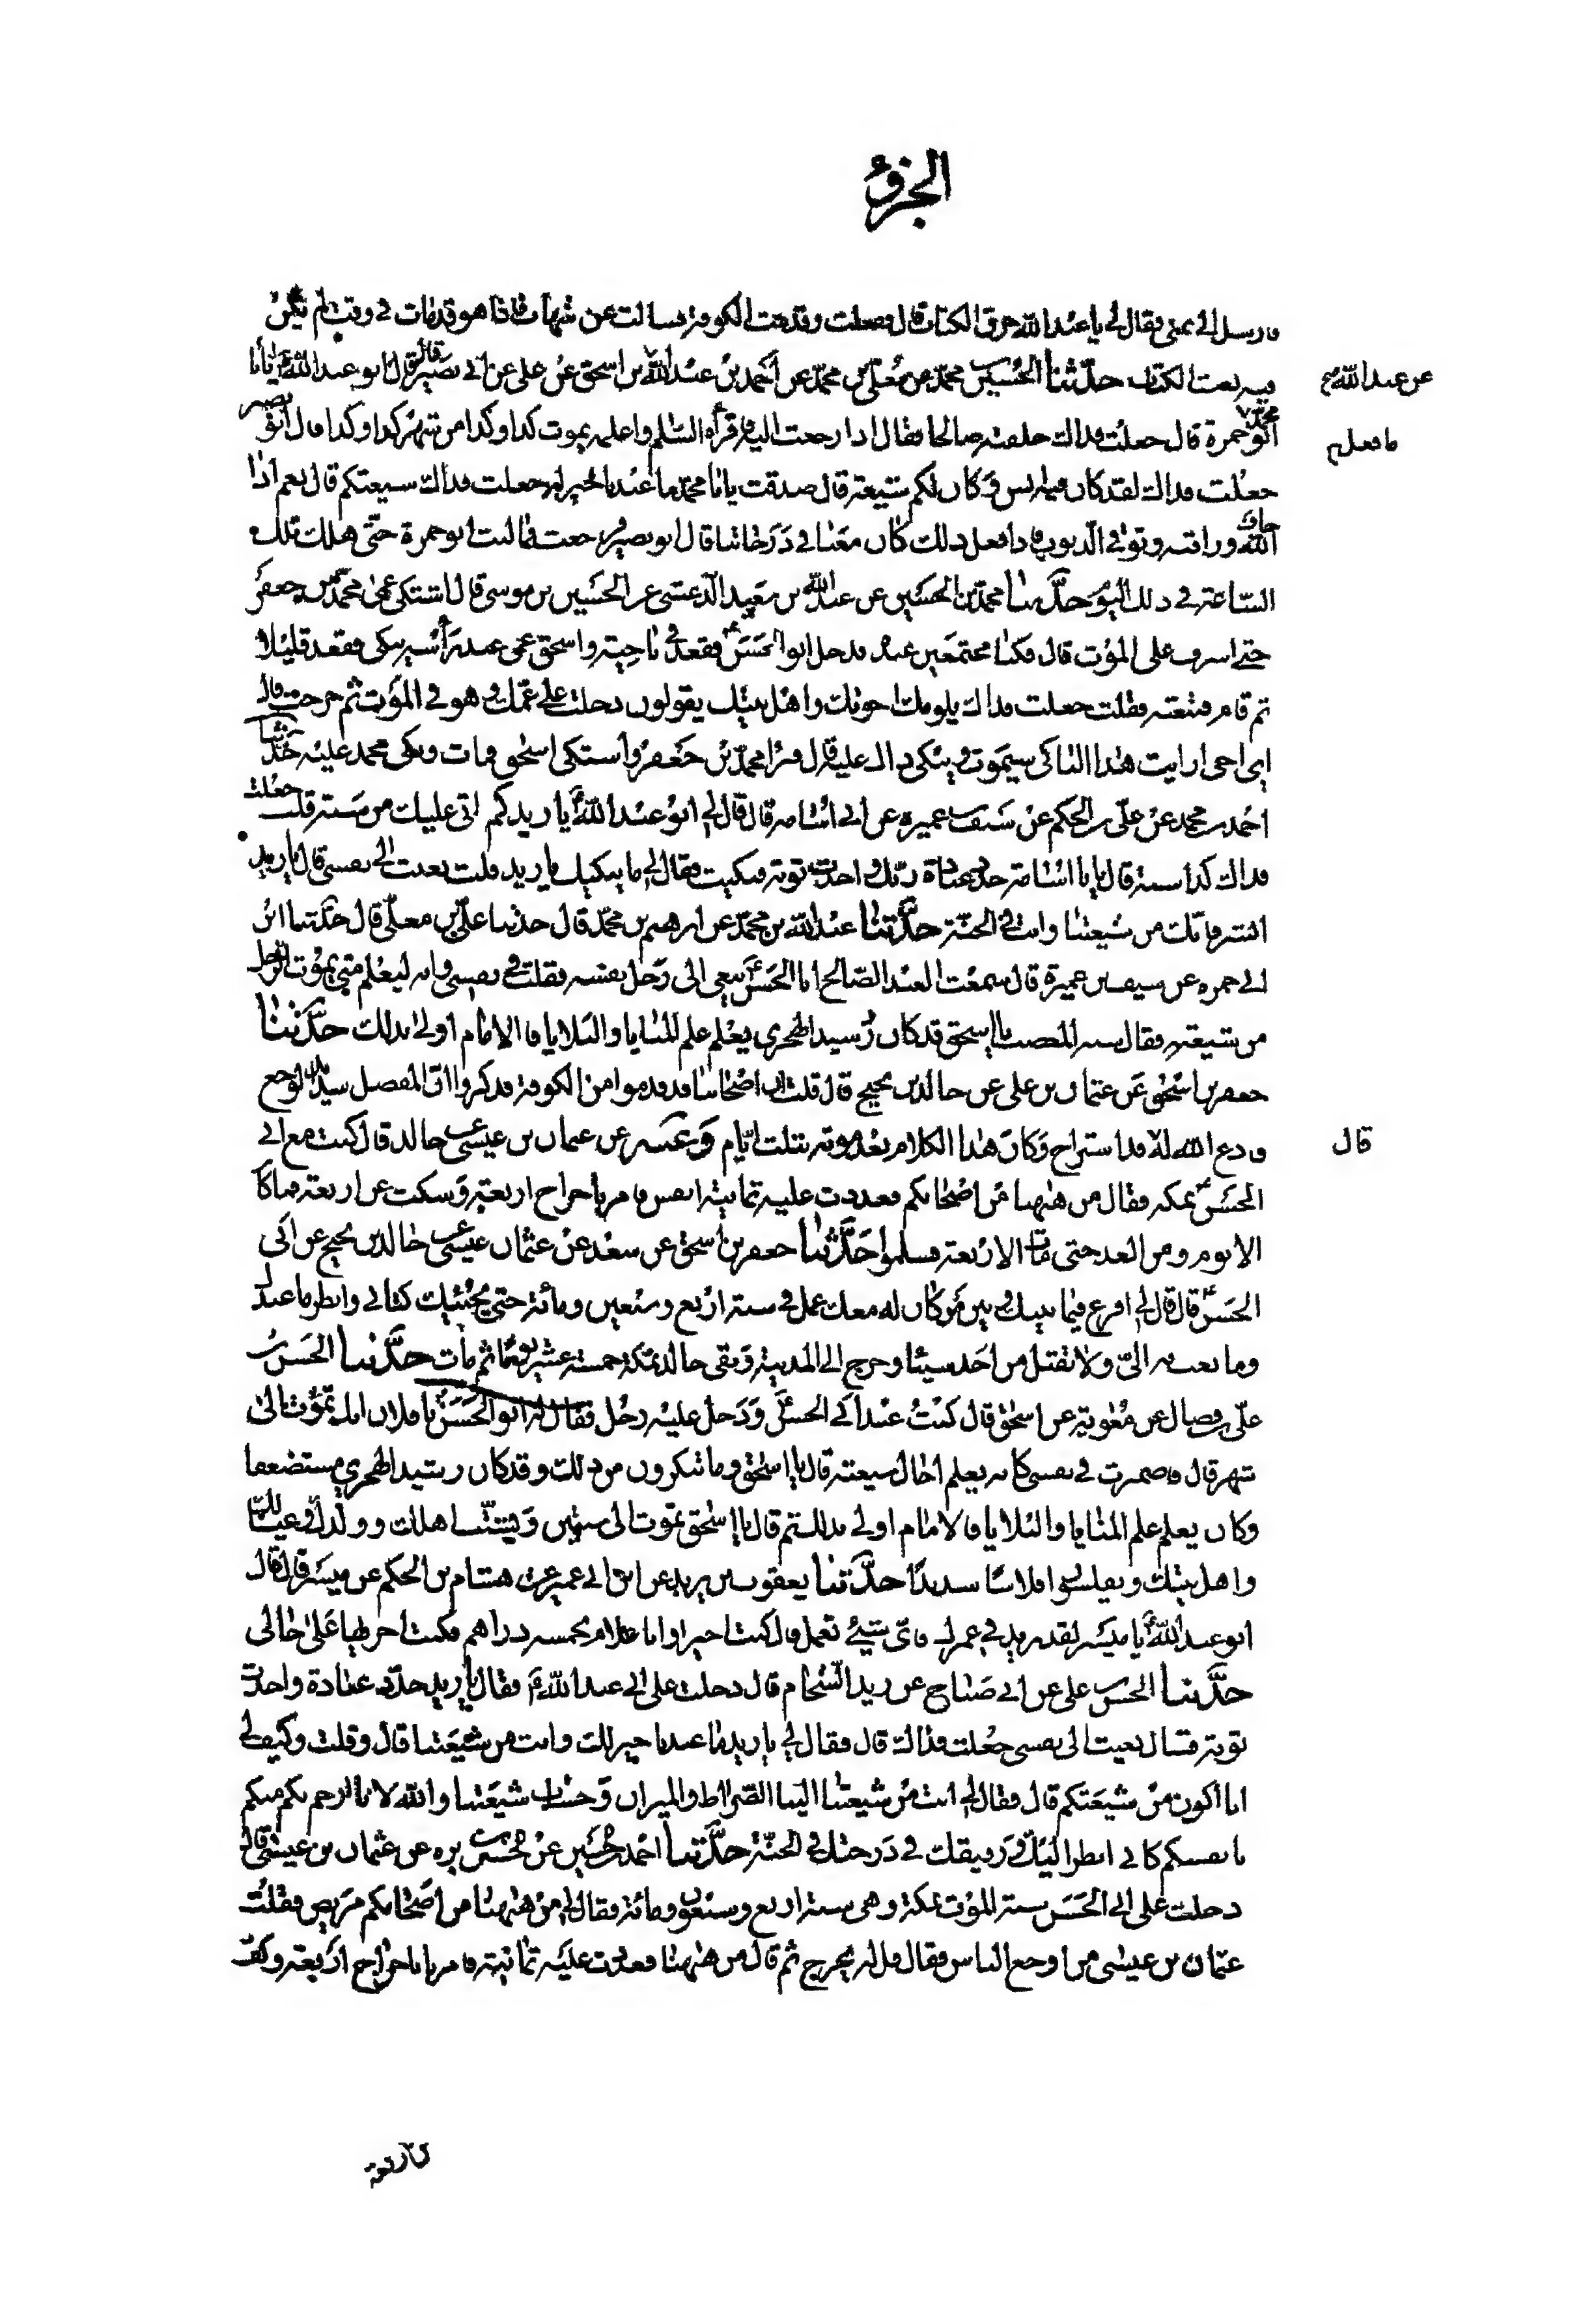 الجزؤ
فارسل الي بمنى فقال لي يا عبد الله خرق الكتاب قال ففعلت وقدمت الكوفة فسالت عن شهاب فاذا هو قد مات في وقت لم يكن
فيه بعث الكتاب حدثنا الحسين بن محمد عن معلى بن محمد عن احمد بن محمد بن عبد الله عن اسحق عن علي عن ابي بصير قال قال ابو عبد الله ع يا ابا
عن عبد الله صح
محمد ما فعل ابو حمزة قال جعلت فداك خلفته صالحا فقال اذا رجعت اليه فاقرأه السلم واعلمه يموت كذا وكذا من شهر كذا وكذا قال ابو بصير
ما فعل صح
جعلت فداك لقد كان فيه انس وكان لكم شيعة قال صدقت يا ابا محمد ما عندنا خير له جعلت فداك شيعتكم قال نعم اذا
خاف الله وراقبه وتوقى الذنوب فاذا فعل ذلك كان معنا في درجاتنا قال ابو بصير فرجعت فما لبث ابو حمزة حتى هلك تلك
الساعة في ذلك اليوم حدثنا محمد بن الحسين عن عبد الله بن سعيد الدغشي عن الحسين بن موسى قال اشتكى عمي محمد بن جعفر
حتى اشرف على الموت قال فكنا مجتمعين عنده فدخل ابو الحسن ع فقعد في ناحية واسحق عمي عند رأسه يبكي فقعد قليلا
ثم قام فتبعته فقلت جعلت فداك يلومك اخوتك واهل بيتك يقولون دخلت على عمك وهو في الموت ثم خرجت قال
اي اخي ارايت هذا الباكي سيموت ويبكي ذاك عليه قال فبرأ محمد بن جعفر واشتكى اسحق فمات وبكى محمد عليه حدثنا
احمد بن محمد عن علي بن الحكم عن سيف بن عميرة عن ابي اسامة قال قال لي ابو عبد الله ع يا زيد كم اتى عليك من سنة قلت جعلت
فداك كذا سنة قال يا ابا اسامة جدد عبادة ربك واحدث توبة فبكيت فقال لي ما يبكيك يا زيد قلت نعيت الي نفسي قال يا زيد
ابشر فانك من شيعتنا وانت في الجنة حدثنا عبد الله بن محمد عن ابرهيم بن محمد قال حدثنا علي بن معلى قال حدثنا ابن
ابي حمزه عن سيف بن عميرة قال سمعت العبد الصالح ابا الحسن ع ينعي الى رجل نفسه فقلت في نفسي وانه ليعلم متى يموت الرجل
من شيعته فقال شبه المغضب يا اسحق قد كان رشيد الهجري يعلم علم المنايا والبلايا فالامام اولى بذلك حدثنا
جعفر بن اسحق عن عثمان بن علي عن خالد بن نجيح قال قلت ان اصحابنا قد قدموا من الكوفة فذكروا ان المفضل شديد الوجع
فادع الله له قال قد استراح وكان هذا الكلام بعد موته بثلث ايام وعنه عن عثمان بن عيسى عن خالد قال كنت مع ابي
قال
الحسن ع بمكه فقال من ههنا من اصحابكم فعددت عليه ثمانية انفس فامر باخراج اربعة وسكت عن اربعة فما كان
الا يومه ومن الغد حتى مات الاربعة فسلموا حدثنا جعفر بن اسحق عن سعد عن عثمان بن عيسى عن خالد بن نجيح عن ابي
الحسن ع قال قال لي افرغ فيما بينك وبين من كان له معك عمل في سنة اربع وسبعين ومائة حتى يجيئك كتابي وانظر ما عندك
وما بعث به الي ولا تقبل من احد شيئا وخرج الى المدينة وبقى خالد بمكة خمسة عشر يوما ثم مات حدثنا الحسن بن
علي بن فضال عن معوية عن اسحق قال كنت عند ابي الحسن ع ودخل عليه رجل فقال له ابو الحسن ع يا فلان انك تموت الى
شهر قال فاضمرت في نفسي كانه يعلم اجال شيعته قال يا اسحق وما تنكرون من ذلك وقد كان رشيد الهجري مستضعفا
وكان يعلم علم المنايا والبلايا فالامام اولى بذلك ثم قال يا اسحق تموت الى سنتين ويتشتت اهلك وولدك وعيالك
واهل بيتك ويفلسون افلاسا شديدا حدثنا يعقوب بن يزيد عن ابن ابي عمير عن هشام بن الحكم عن ميسر قال قال
ابو عبد الله ع يا ميسر لقد زيد في عمرك فاي شيئ تعمل قال كنت اجيرا وانا غلام بخمسه دراهم فكنت اجريها على خالي
حدثنا الحسن بن علي عن ابي صباح عن زيد الشحام قال دخلت على ابي عبد الله ع فقال يا زيد جدد عبادة واحدث
توبة فسال نعيت الى نفسي جعلت فداك قال فقال لي يا زيد ما عندنا خير لك وانت من شيعتنا قال وقلت وكيف لي
انا اكون من شيعتكم قال فقال لي انت من شيعتنا الينا الصراط والميزان وحساب شيعتنا والله لانا ارحم بكم منكم
بانفسكم كاني انظر اليك ورفيقك في درجتك في الجنة حدثنا احمد بن حسين عن الحسن بن بره عن عثمان بن عيسى قال
دخلت على ابي الحسن سنة الموت بمكة وهي سنة اربع وسبعين ومائة فقال لي من ههنا من اصحابكم مريض فقلت
عثمان بن عيسى من اوجع الناس فقال قل له يخرج ثم قال من ههنا فعددت عليه ثمانية فامر باخراج اربعة وكف
عن اربعة